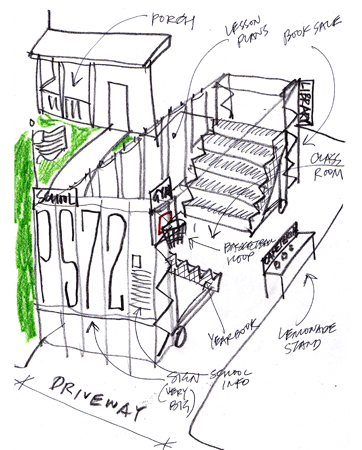 PORCH
LESSON
PLANS
BOOK SALE
LIBRARY
CLASS
ROOM
SCHOOL
GYM
PS72
BASKETBALL
HOOP
CAFETERIA
YEARBOOK
LEMONADE
STAND
SIGN
(VERY
BIG)
SCHOOL
INFO
DRIVEWAY